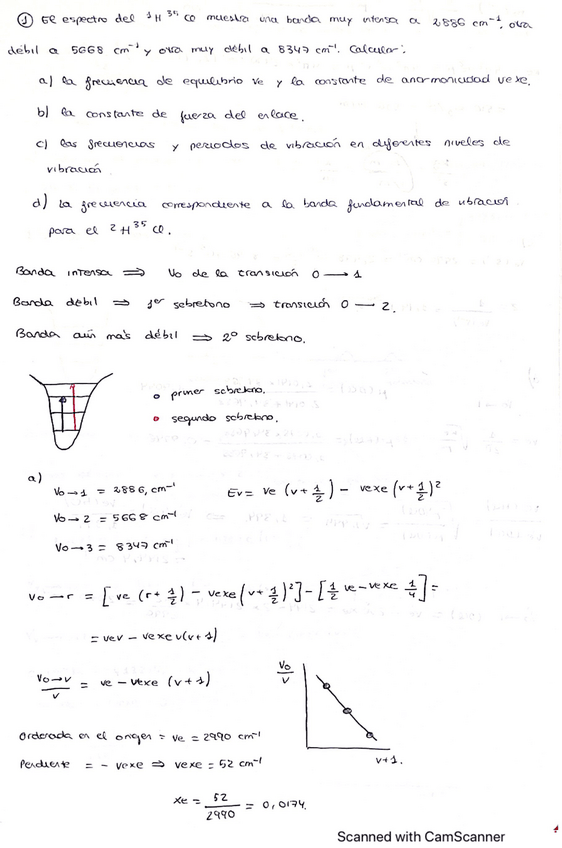 ① El espectro del ¹H ³⁵Cl muestra una banda muy intensa a 2886 cm⁻¹, otra
débil a 5668 cm⁻¹ y otra muy débil a 8347 cm⁻¹. Calcular:
a) la frecuencia de equilibrio νe y la constante de anarmonicidad νexe.
b) la constante de fuerza del enlace.
c) las frecuencias y periodos de vibración en diferentes niveles de
vibración.
d) La frecuencia correspondiente a la banda fundamental de vibración
para el ²H ³⁵Cl.
Banda intensa ⟹ V0 de la transición 0 → 1
Banda débil ⟹ 1er sobretono ⟹ transición 0 — 2.
Banda aún más débil ⟹ 2º sobretono.
o primer sobretono.
o segundo sobretono.
a)
V0→1 = 2886, cm⁻¹ Ev = νe (v + 1/2) − νexe (v + 1/2)²
V0→2 = 5668 cm⁻¹
V0→3 = 8347 cm⁻¹
V0→r = [νe (r + 1/2) − νexe (v + 1/2)²] − [1/2 νe − νexe 1/4] =
= νev − νexe v(v + 1)
V0→v / v = νe − νexe (v + 1)
V0 / v
v + 1.
Ordenada en el origen = νe = 2990 cm⁻¹
Pendiente = − νexe ⟹ νexe = 52 cm⁻¹
xe = 52 / 2990 = 0,0174.
Scanned with CamScanner